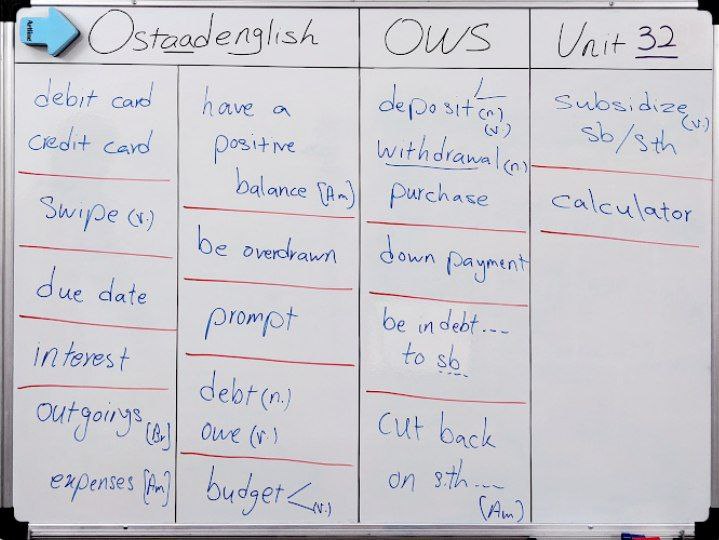 Ostaadenglish
OWS
Unit 32
debit card
credit card
swipe (v.)
due date
interest
outgoings [Br]
expenses [Am]
have a
positive
balance [Am]
be overdrawn
prompt
debt (n.)
owe (v.)
budget < (v.)
deposit (n.)
(v.)
withdrawal (n)
purchase
down payment
be in debt ---
to sb
cut back
on s.th ---
(Am)
subsidize (v.)
sb/sth
calculator